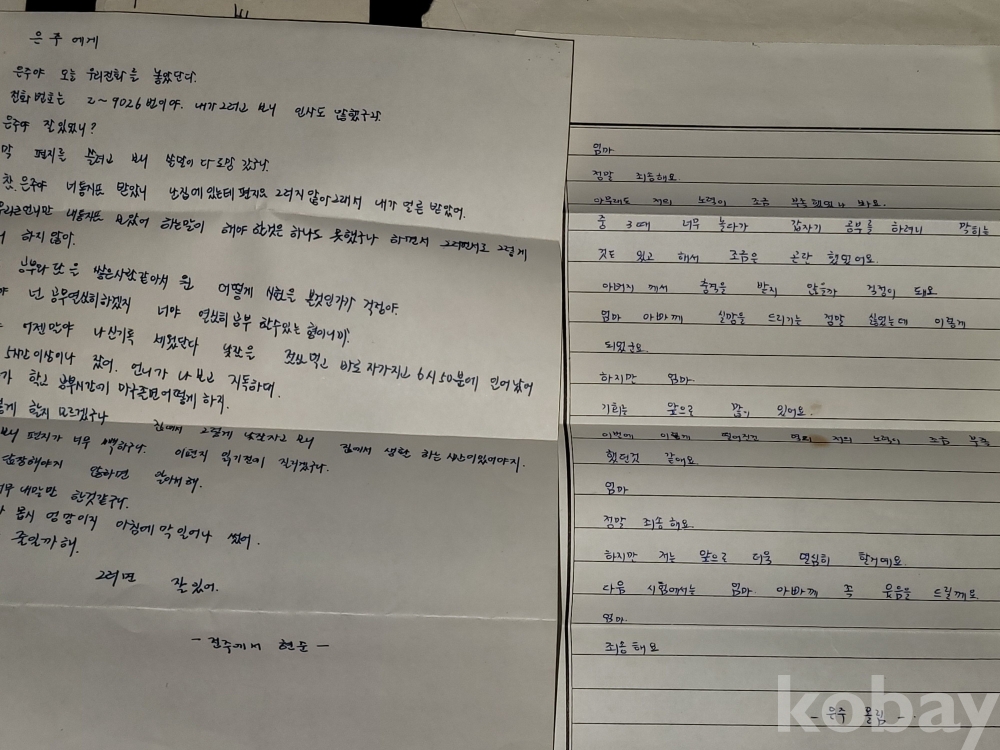 은주에게
은주야 오늘 우리전화를 놓았단다.
전화번호는 2~9026번이야. 내가 그러고 보니 인사도 안했구나.
은주야 잘있었니?
막 편지를 쓸려고 보니 할말이 다 도망 갔구나.
참. 은주야 너 통지표 받았니 난 집에 있는데 편지요 그러지 않아 그래서 내가 얼른 받았어.
우리큰언니한 내통지표 보았어 하는말이 해야 한것은 하나도 못했구나 하면서 그러면서도 그렇게
하지 않아.
공부와 담을 쌓은사람같아서 원 어떻게 시험은 본것인가가 걱정야.
넌 공부열심히하겠지 너야 열심히 공부 할수있는 형이니까.
어젠말야 나 신기록 세웠단다 낮잠을 점심먹고 바로 자가지고 6시 50분에 일어났어
5시간이상이나 잤어. 언니가 나보고 지독하대.
학교 공부시간에 마구졸면어떻게 하지.
할지 모르겠구나 집에서 그렇게 낮잠자고 보니 집에서 생활 하는 시간이있어야지.
보니 편지가 너무 썩하구나. 이런지 읽기전이 지겨겠구나.
않하면 알아서해.
내말만 한것같구나.
몹시 엉망이지 아침에 막 일어나 썼어.
줄일까해.
그러면 잘있어.
- 전주에서 현순 -
엄마
정말 죄송해요.
아무래도 저의 노력이 조금 부족했었나 봐요.
중 3때 너무 놀다가 갑자기 공부를 하려니 막히는
것도 있고 해서 조금은 곤란 했었어요.
아버지 께서 충격을 받지 않을까 걱정이 돼요
엄마 아빠께 실망을 드리기는 정말 싫었는데 이렇게
되었군요.
하지만 엄마.
기회는 앞으로 많이 있어요.
이번에 이렇게 떨어진건 역시 저의 노력이 조금 부족
했던것 같아요
엄마
정말 죄송해요.
하지만 저는 앞으로 더욱 열심히 할거예요.
다음 시험에서는 엄마 아빠께 꼭 웃음을 드릴께요
엄마.
죄송해요
- 은주 올림 -
kobay